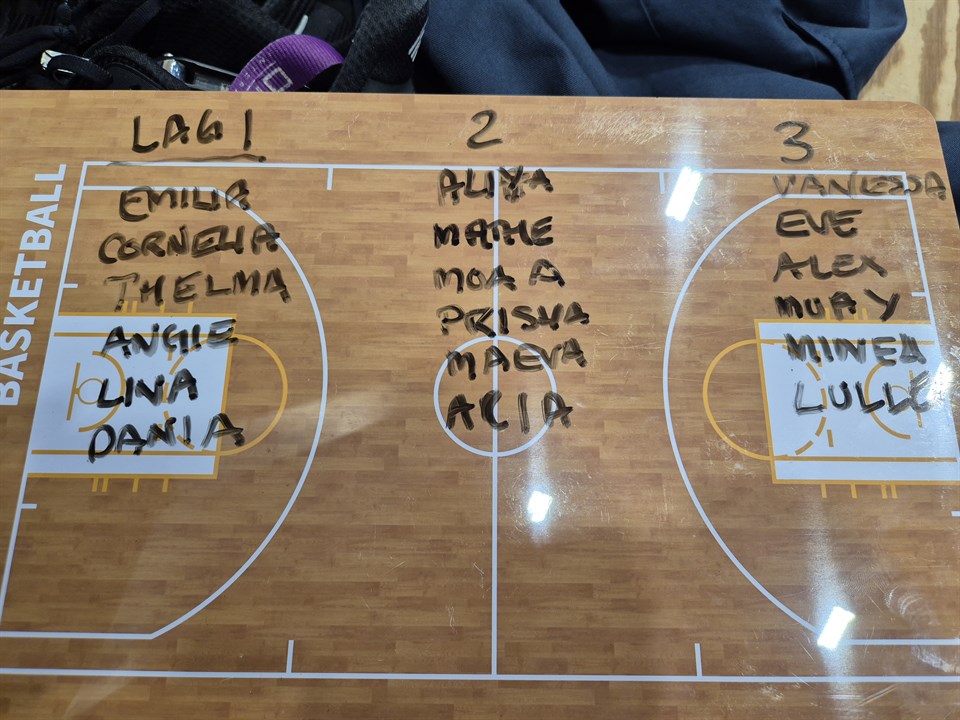 BASKETBALL
LAG 1
EMILIA
CORNELIA
THELMA
ANGIE
LINA
DANIA
2
ALIYA
MATHE
MOA A
PRISHA
MAEVA
3
VANESSA
EVE
ALEX
MUAY
MINEA